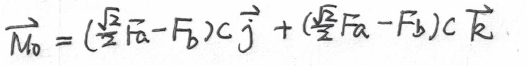 $\vec{M_0} = (\frac{\sqrt{2}}{2}F_a - F_b)c\vec{j} + (\frac{\sqrt{2}}{2}F_a - F_b)c\vec{k}$